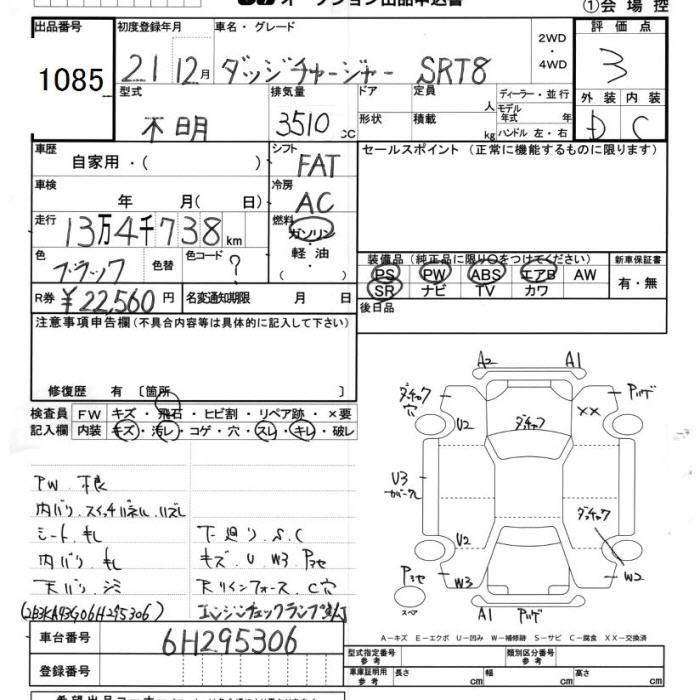 オークション出品申込書
①会場控
出品番号 初度登録年月 車名・グレード 評価点
1085 21 12月 ダッジチャージャー SRT8 2WD・4WD 3
型式 排気量 ドア 定員 人 ディーラー・並行 外装 内装
不明 3510cc 形状 積載 kg モデル年式 年 ハンドル 左・右 D C
車歴 自家用・( ) シフト FAT セールスポイント (正常に機能するものに限ります)
車検 年 月( 日) 冷房 AC
走行 13万4千738km 燃料 ガソリン・軽油・( )
色 ブラック 色替 色コード ? 装備品(純正品に限り○をつけてください) 新車保証書
PS PW ABS エアB AW 有・無
SR ナビ TV カワ
R券 ¥22,560円 名変通知期限 月 日 後日品
注意事項申告欄(不具合内容等は具体的に記入して下さい)
修復歴 有〔箇所 〕
検査員記入欄 FW キズ・飛石・ヒビ割・リペア跡・×要
内装 キズ・汚レ・コゲ・穴・スレ・キレ・破レ
PW 根
内バリ.スイッチパネル.ハズレ
シート.キレ 下廻り.S.C
内バリ キレ キズ U W3 Pヨセ
天バリ.シミ Rリインフォース.C穴
(2B3KA43G06H295306) エンジンチェックランプ
車台番号 6H295306
登録番号
A2 A1
ダッチャク穴 ダッチャク Pハゲ
U2 XX
U3
ダッチャク
U2
Pヨセ W3 W2
スペア A1 Pハゲ
A－キズ E－エクボ U－凹み W－補修跡 S－サビ C－腐食 XX－交換済
型式指定番号 参考 類別区分番号 参考
車庫証明用 参考 長さ cm 幅 cm 高さ cm